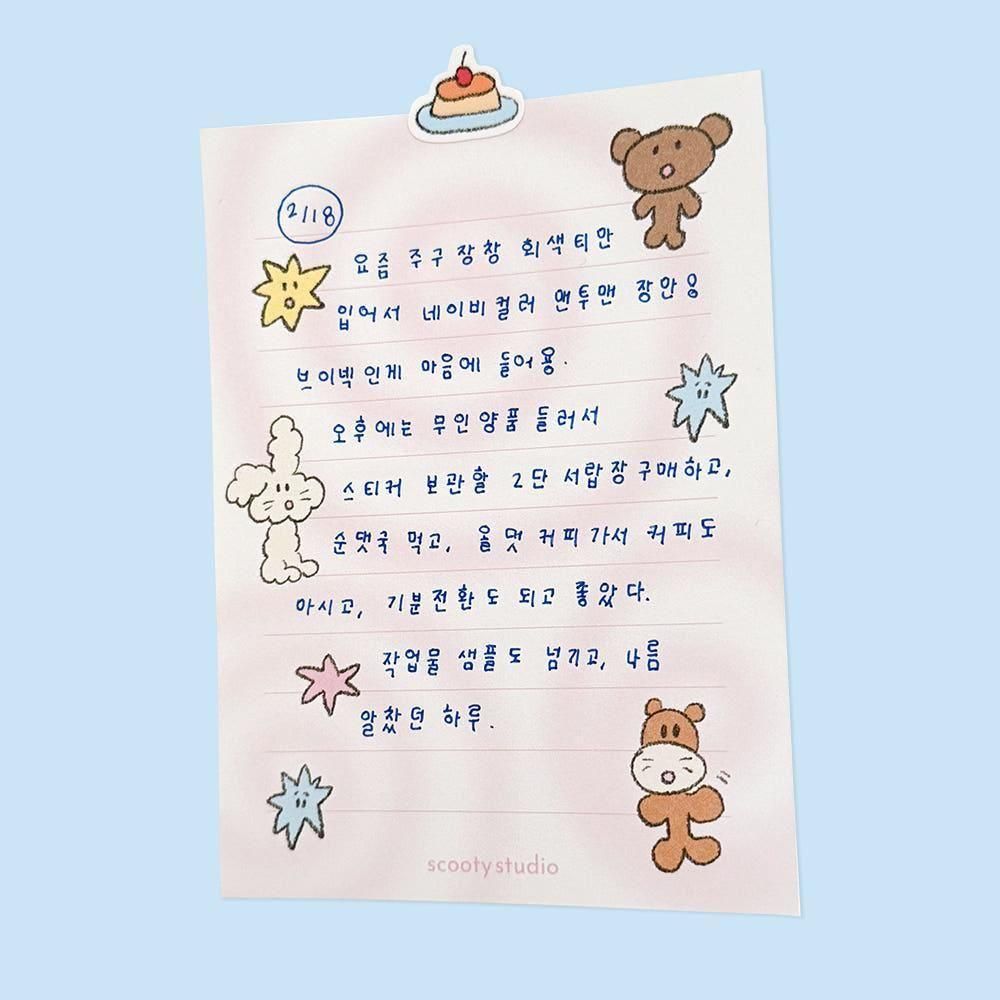 2/18
요즘 주구장창 회색티만
입어서 네이비컬러 맨투맨 장만용
브이넥인게 마음에 들어용.
오후에는 무인양품 들러서
스티커 보관할 2단 서랍장 구매하고,
순댓국 먹고, 올댓커피가서 커피도
마시고, 기분전환도 되고 좋았다.
작업물 샘플도 넘기고, 나름
알찼던 하루.
scooty studio